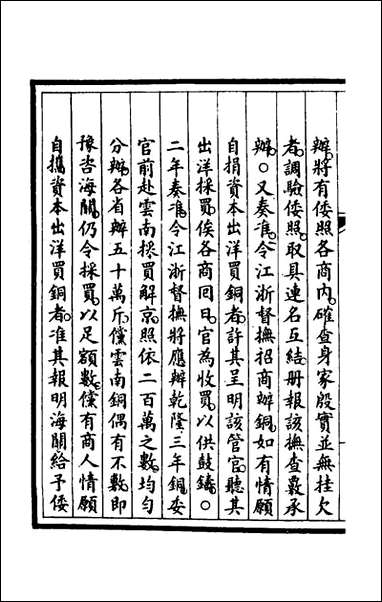 辦將有倭照各商內確查身家殷實並無挂欠
者調驗倭照取具連名互結冊報該撫查覈承
辦○又奏准令江浙督撫招商辦銅如有情願
自捐資本出洋買銅者許其呈明該管官聽其
出洋採買俟各商回日官為收買以供鼓鑄○
二年奏准令江浙督撫將應辦乾隆三年銅委
官前赴雲南採買解京照依二百萬之數均勻
分辦各省辦五十萬斤儻雲南銅偶有不敷即
豫咨海關仍令採買以足額數儻有商人情願
自攜資本出洋買銅者准其報明海關給予倭